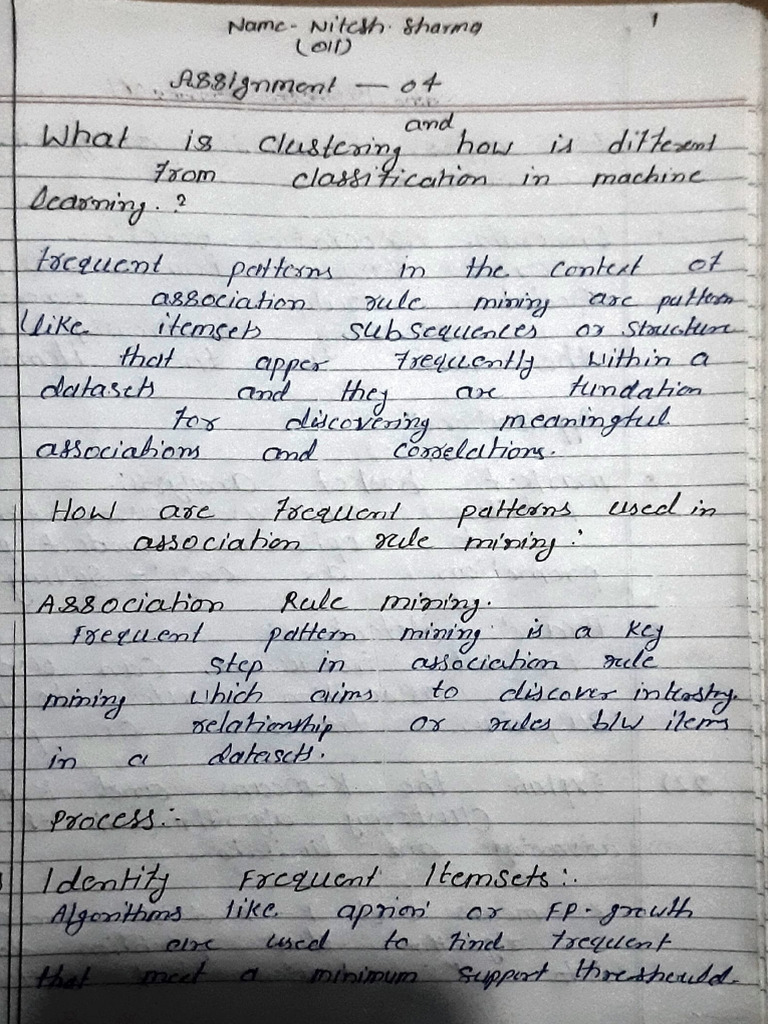 Name - Nitesh Sharma
1
(011)
Assignment — 04
and
What is clustering how is different
from classification in machine
learning. ?
frequent patterns in the context of
association rule mining are pattern
like itemsets subsequences or structure
that apper frequently within a
datasets and they are fundation
for discovering meaningful
associations and correlations.
How are frequent patterns used in
association rule mining:
Association Rule mining.
Frequent pattern mining is a key
step in association rule
mining which aims to discover
relationship or rules b/w items
in a datasets.
Process:-
Identify Frequent Itemsets:.
Algorithms like apriori or FP-growth
are used to find frequent
that meet a minimum support threshould.